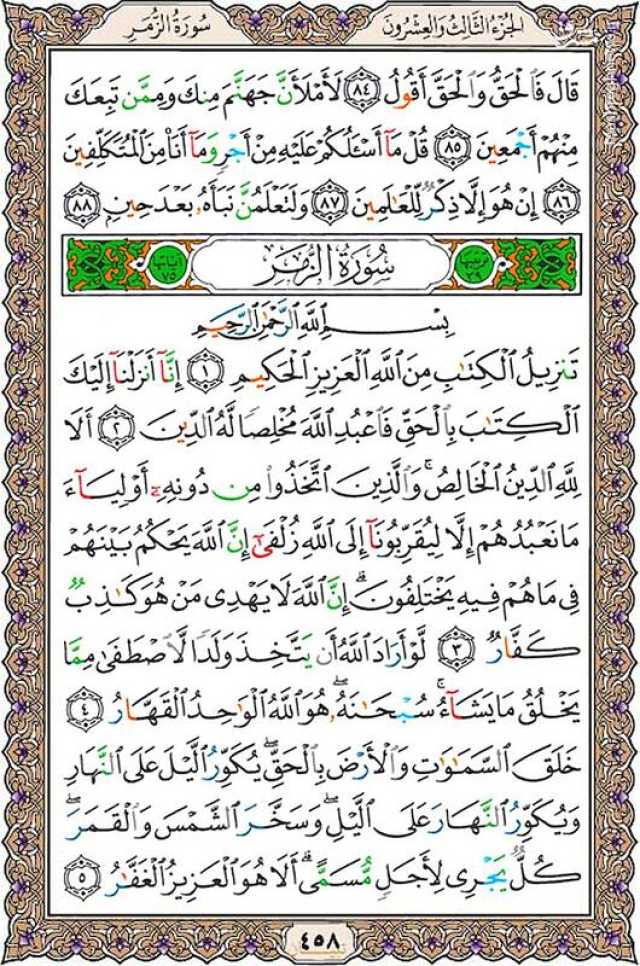 الجزء الثالث والعشرون
سورة الزمر
قَالَ فَالْحَقُّ وَالْحَقَّ أَقُولُ ﴿٨٤﴾ لَأَمْلَأَنَّ جَهَنَّمَ مِنكَ وَمِمَّن تَبِعَكَ
مِنْهُمْ أَجْمَعِينَ ﴿٨٥﴾ قُلْ مَآ أَسْـَٔلُكُمْ عَلَيْهِ مِنْ أَجْرٍ وَمَآ أَنَا۠ مِنَ الْمُتَكَلِّفِينَ
﴿٨٦﴾ إِنْ هُوَ إِلَّا ذِكْرٌ لِّلْعَالَمِينَ ﴿٨٧﴾ وَلَتَعْلَمُنَّ نَبَأَهُۥ بَعْدَ حِينٍ ﴿٨٨﴾
آياتها ٧٥
سُورَةُ الزُّمَرِ
بِسْمِ اللَّهِ الرَّحْمَٰنِ الرَّحِيمِ
تَنزِيلُ الْكِتَابِ مِنَ اللَّهِ الْعَزِيزِ الْحَكِيمِ ﴿١﴾ إِنَّآ أَنزَلْنَآ إِلَيْكَ
الْكِتَابَ بِالْحَقِّ فَاعْبُدِ اللَّهَ مُخْلِصًا لَّهُ الدِّينَ ﴿٢﴾ أَلَا
لِلَّهِ الدِّينُ الْخَالِصُ ۚ وَالَّذِينَ اتَّخَذُوا مِن دُونِهِۦٓ أَوْلِيَآءَ
مَا نَعْبُدُهُمْ إِلَّا لِيُقَرِّبُونَآ إِلَى اللَّهِ زُلْفَىٰٓ إِنَّ اللَّهَ يَحْكُمُ بَيْنَهُمْ
فِى مَا هُمْ فِيهِ يَخْتَلِفُونَ ۗ إِنَّ اللَّهَ لَا يَهْدِى مَنْ هُوَ كَاذِبٌ
كَفَّارٌ ﴿٣﴾ لَّوْ أَرَادَ اللَّهُ أَن يَتَّخِذَ وَلَدًا لَّاصْطَفَىٰ مِمَّا
يَخْلُقُ مَا يَشَآءُ ۚ سُبْحَانَهُۥ ۖ هُوَ اللَّهُ الْوَاحِدُ الْقَهَّارُ ﴿٤﴾
خَلَقَ السَّمَاوَاتِ وَالْأَرْضَ بِالْحَقِّ ۖ يُكَوِّرُ اللَّيْلَ عَلَى النَّهَارِ
وَيُكَوِّرُ النَّهَارَ عَلَى اللَّيْلِ ۖ وَسَخَّرَ الشَّمْسَ وَالْقَمَرَ ۖ
كُلٌّ يَجْرِى لِأَجَلٍ مُّسَمًّى ۗ أَلَا هُوَ الْعَزِيزُ الْغَفَّارُ ﴿٥﴾
٤٥٨